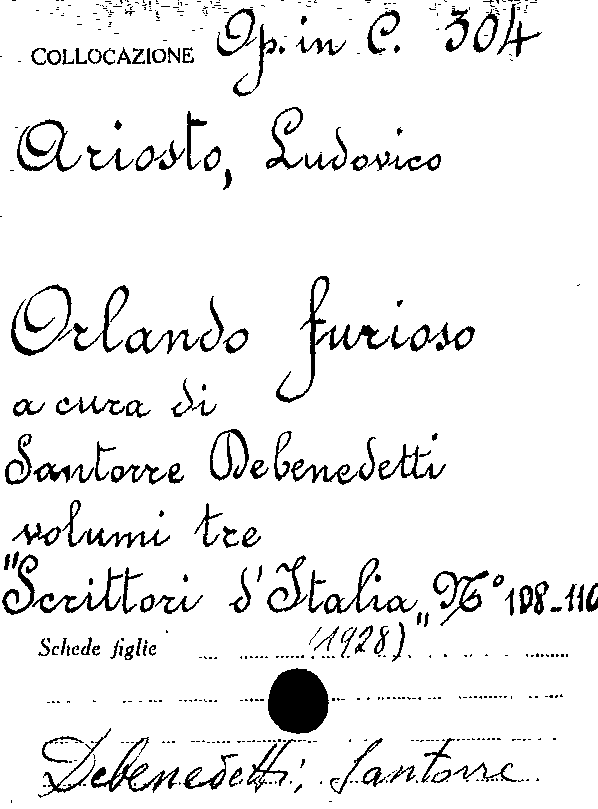 COLLOCAZIONE Op. in C. 304
Ariosto, Ludovico
Orlando furioso
a cura di
Santorre Debenedetti
volumi tre
"Scrittori d'Italia„ N° 108-110
Schede figlie (1928)
Debenedetti, Santorre